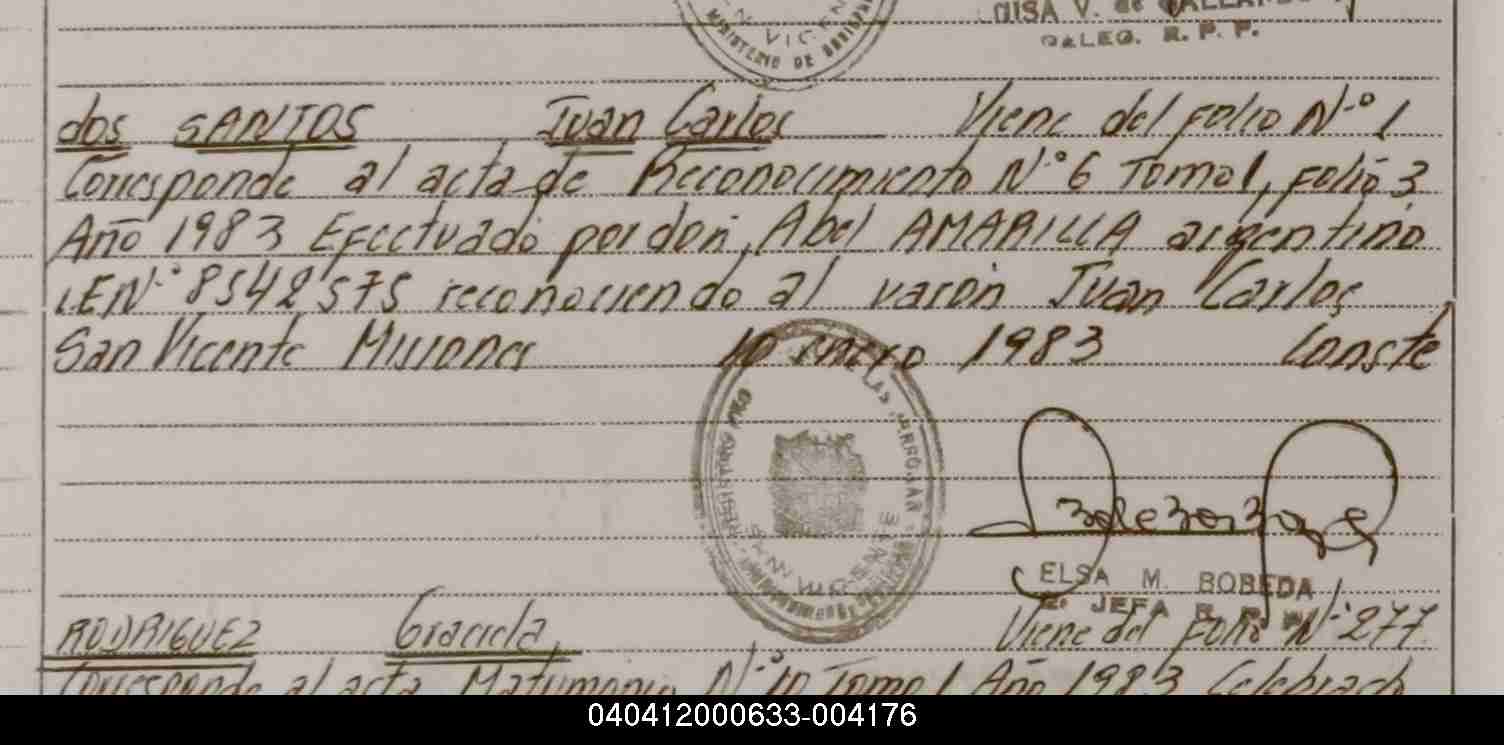 LUISA V. de GALLARDO
DALEG. R. P. P.
MINISTERIO DE
VICEN
dos SANTOS Juan Carlos Viene del folio N.º 1
Corresponde al acta de Reconocimiento N.º 6 Tomo 1, folio 3
Año 1983 Efectuado por don, Abel AMARILLA argentino
L.E N.º 8542575 reconociendo al varon Juan Carlos
San Vicente Misiones 10 enero 1983 Conste
LAS
SAN VICENTE
ELSA M. BOBEDA
JEFA R. P.
RODRIGUEZ Graciela, Viene del Folio N.º 277
Corresponde al acta Matrimonio N.º 10 Tomo 1 Año 1983 Celebrado
040412000633-004176